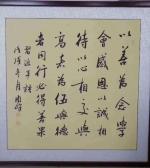 以善為念學
會感恩以誠相
待以心相交與
高者為伍與德
者同行必得善果
戊戌年